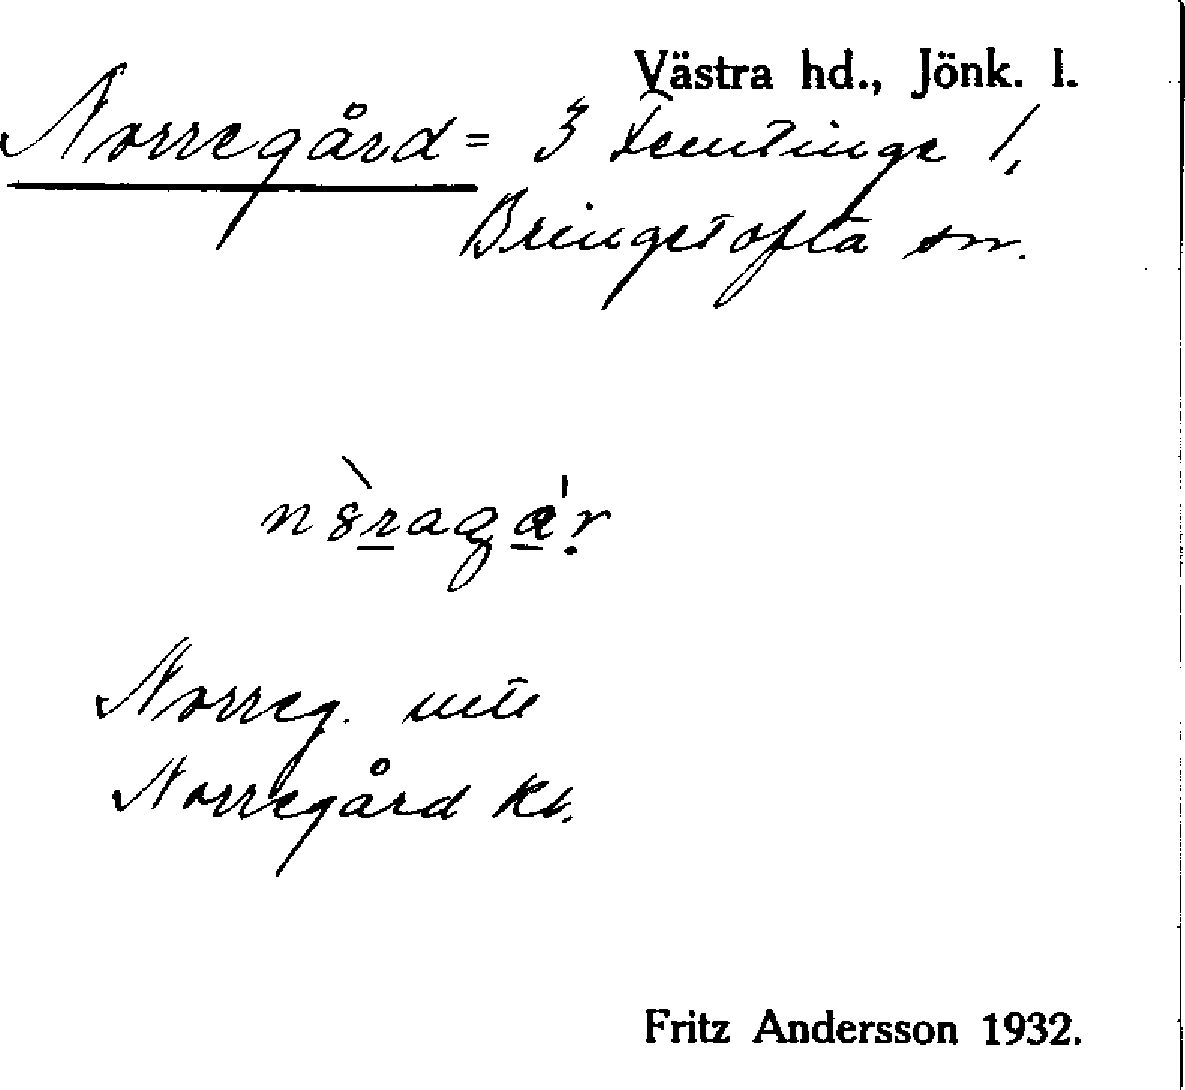 Västra hd., Jönk. l.
Norregård = 3 Femtinge 1,
Bringetofta sn.
Norreg. utu
Norregård kt.
Fritz Andersson 1932.